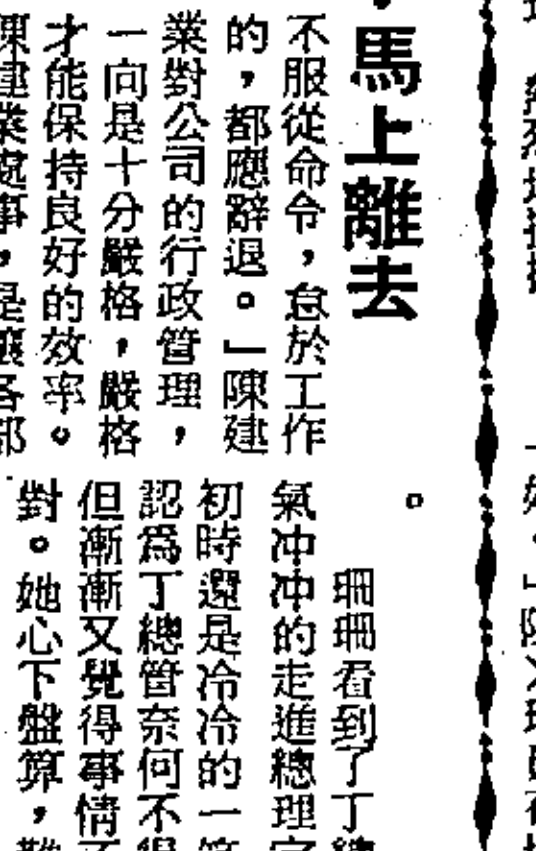 馬上離去
不服從命令，怠於工作
的，都應辭退。」陳建
業對公司的行政管理，
一向是十分嚴格，嚴格
才能保持良好的效率。
陳建業處事，是讓各部
。
珊珊看到了丁總
氣冲冲的走進總理
初時還是冷冷的一
認爲丁總管奈何不得
但漸漸又覺得事情不
對。她心下盤算，難